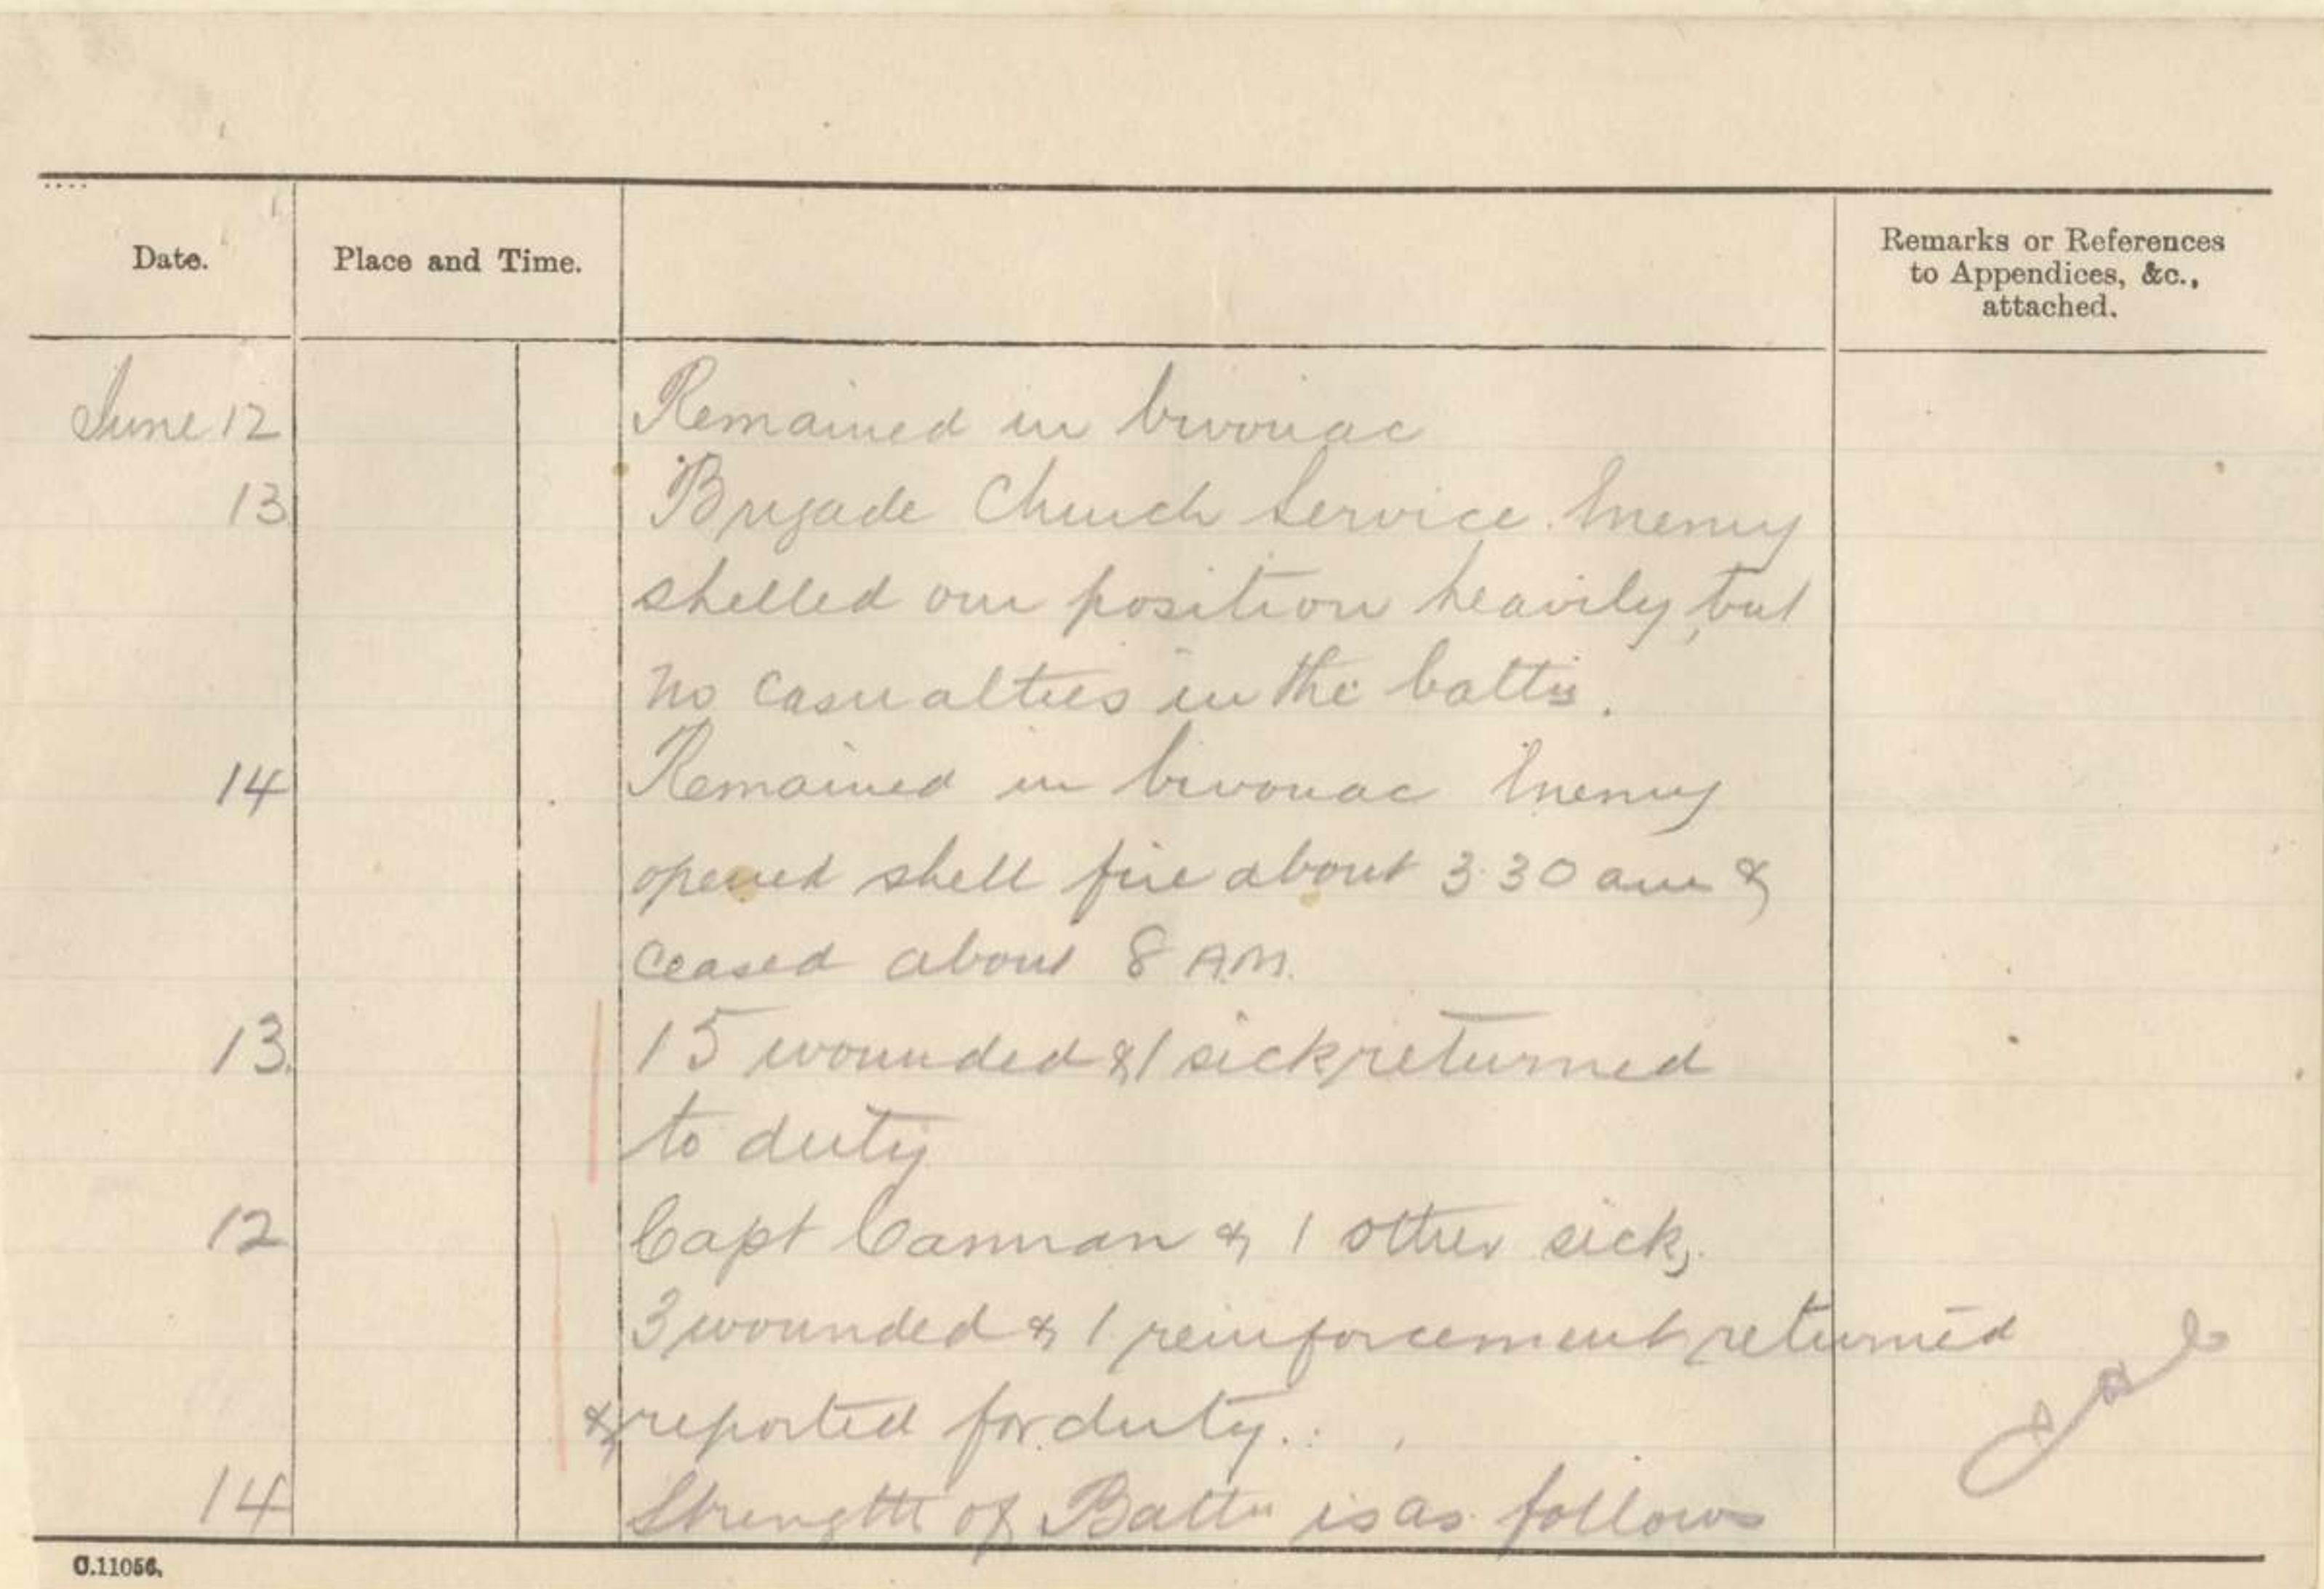 Date.
Place and Time.
Remarks or References
to Appendices, &c.,
attached.
June 12 Remained in bivouac
13 Brigade Church Service. Enemy
shelled our position heavily, but
no casualties in the battn.
14 Remained in bivouac Enemy
opened shell fire about 3.30 am &
ceased about 8 A.M.
13. 15 wounded & 1 sick returned
to duty
12 Capt Cannan & 1 other sick,
3 wounded & 1 reinforcement returned
& reported for duty.
14 Strength of Battn is as follows
O.11056.